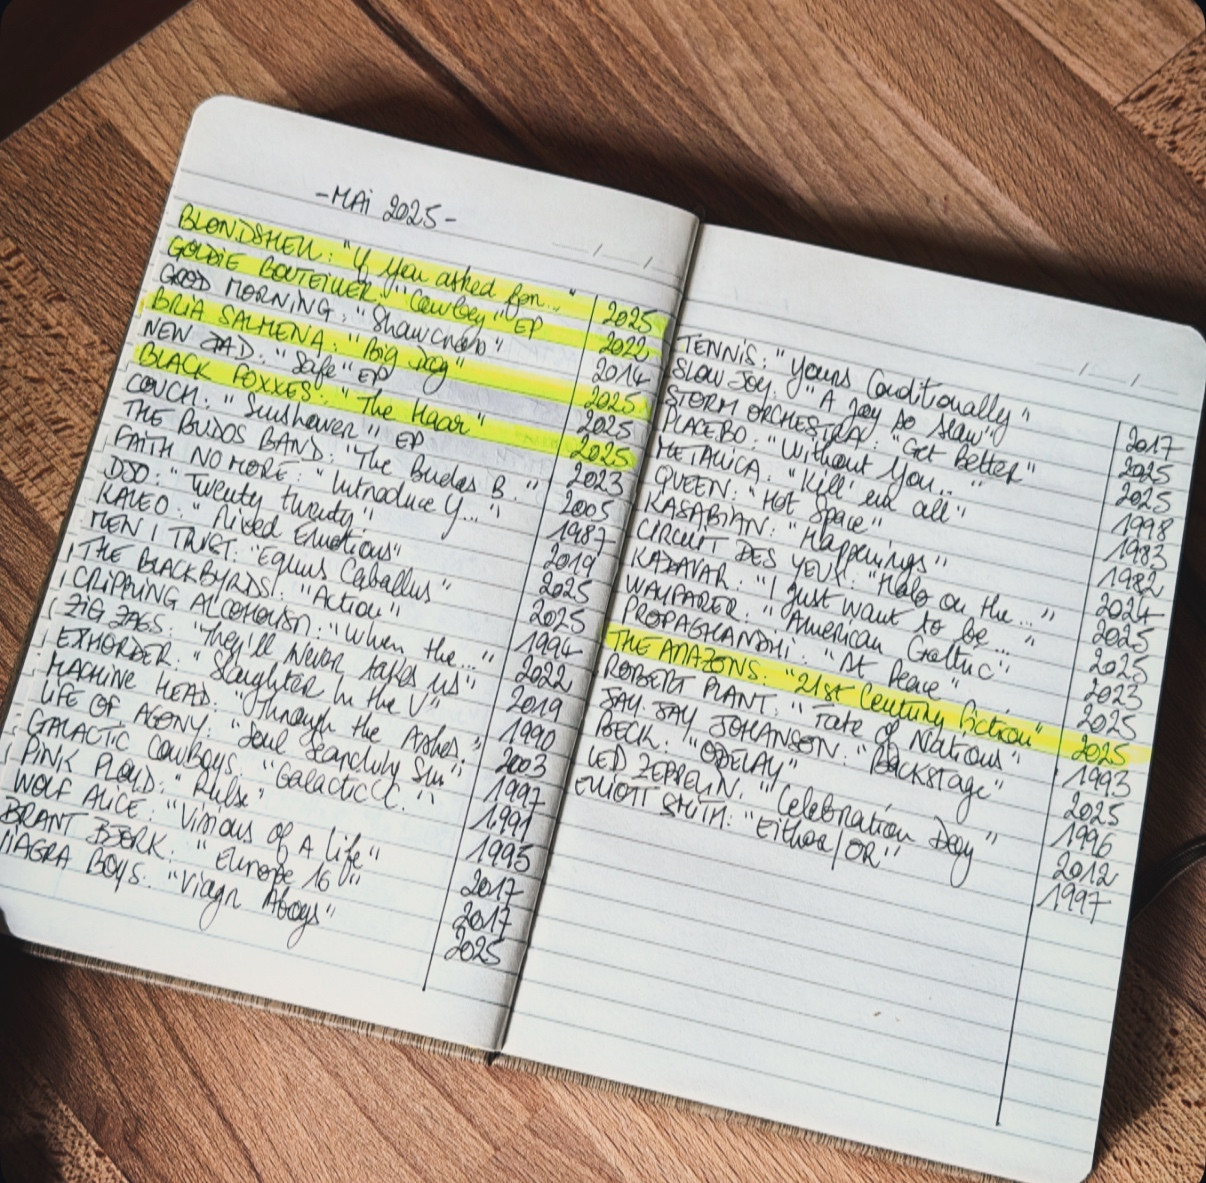 -MAI 2025-
BLONDSHELL: "If You asked for..." 2025
GOLDIE BOUTEILLER: "Cowboy" EP 2022
GOOD MORNING: "Shawcross" 2014
BRIA SALMENA: "Big Dog" 2025
NEW DAD: "Safe" EP 2025
BLACK FOXXES: "The Haar" 2025
COUCH: "Sunshower" EP 2023
THE BUDOS BAND: "The Budos B." 2005
FAITH NO MORE: "Introduce Y..." 1987
DJO: "Twenty twenty" 2019
KALEO: "Mixed Emotions" 2025
MEN I TRUST: "Equus Caballus" 2025
THE BLACKBYRDS: "Action" 1994
CRIPPLING ALCOHOLISM: "When the..." 2022
ZIG ZAGS: "They'll Never take us" 2019
EXHORDER: "Slaughter in the V" 1990
MACHINE HEAD: "Through the Ashes." 2003
LIFE OF AGONY: "Soul Searching Sun" 1997
GALACTIC COWBOYS: "Galactic C." 1991
PINK FLOYD: "Pulse" 1995
WOLF ALICE: "Visions of A Life" 2017
BRANT BJORK: "Europe 16" 2017
VIAGRA BOYS: "Viagr Aboys" 2025
TENNIS: "Yours Conditionally" 2017
SLOW JOY: "A Joy So Slow" 2025
STORM ORCHESTRA: "Get Better" 2025
PLACEBO: "Without You..." 1998
METALLICA: "Kill 'em all" 1983
QUEEN: "Hot Space" 1982
KASABIAN: "Happenings" 2024
CIRCUIT DES YEUX: "Halo on the..." 2025
KADAVAR: "I Just want to be..." 2025
WAYFARER: "American Gothic" 2023
PROPAGHANDHI: "At Peace" 2025
THE AMAZONS: "21st Century Fiction" 2025
ROBERT PLANT: "Fate of Nations" 1993
JAY-JAY JOHANSON: "Backstage" 2025
BECK: "ODELAY" 1996
LED ZEPPELIN: "Celebration Day" 2012
ELLIOTT SMITH: "Either/OR" 1997